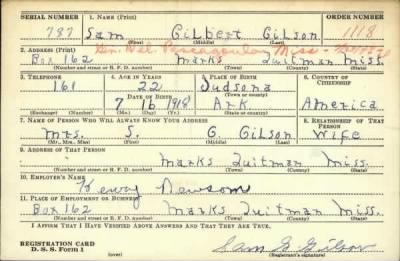 SERIAL NUMBER 1. NAME (Print) ORDER NUMBER
787 Sam Gilbert Gilson 1118
(First) (Middle) (Last)
2. ADDRESS (Print) Gen. Del. Pascagoula, Miss
Box 162 Marks Quitman Miss.
(Number and street or R. F. D. number) (Town) (County) (State)
3. TELEPHONE 4. AGE IN YEARS 5. PLACE OF BIRTH 6. COUNTRY OF CITIZENSHIP
161 22 Judsona
DATE OF BIRTH (Town or county)
7 16 1918 Ark America
(Exchange) (Number) (Mo.) (Day) (Yr.) (State or country)
7. NAME OF PERSON WHO WILL ALWAYS KNOW YOUR ADDRESS 8. RELATIONSHIP OF THAT PERSON
Mrs. S. G. Gilson Wife
(Mr., Mrs., Miss) (First) (Middle) (Last)
9. ADDRESS OF THAT PERSON
Marks Quitman Miss.
(Number and street or R. F. D. number) (Town) (County) (State)
10. EMPLOYER'S NAME
Newsom
11. PLACE OF EMPLOYMENT OR BUSINESS
Box 162 Marks Quitman Miss.
(Number and street or R. F. D. number) (Town) (County) (State)
I AFFIRM THAT I HAVE VERIFIED ABOVE ANSWERS AND THAT THEY ARE TRUE.
REGISTRATION CARD
D. S. S. Form 1 (over) Sam G Gilson
(Registrant's signature)